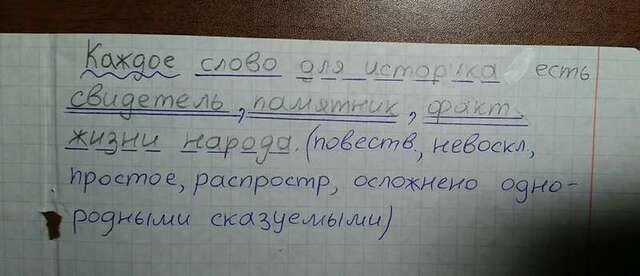 Каждое слово для историка есть
свидетель, памятник, факт
жизни народа. (повеств., невоскл,
простое, распростр, осложнено одно-
родными сказуемыми)